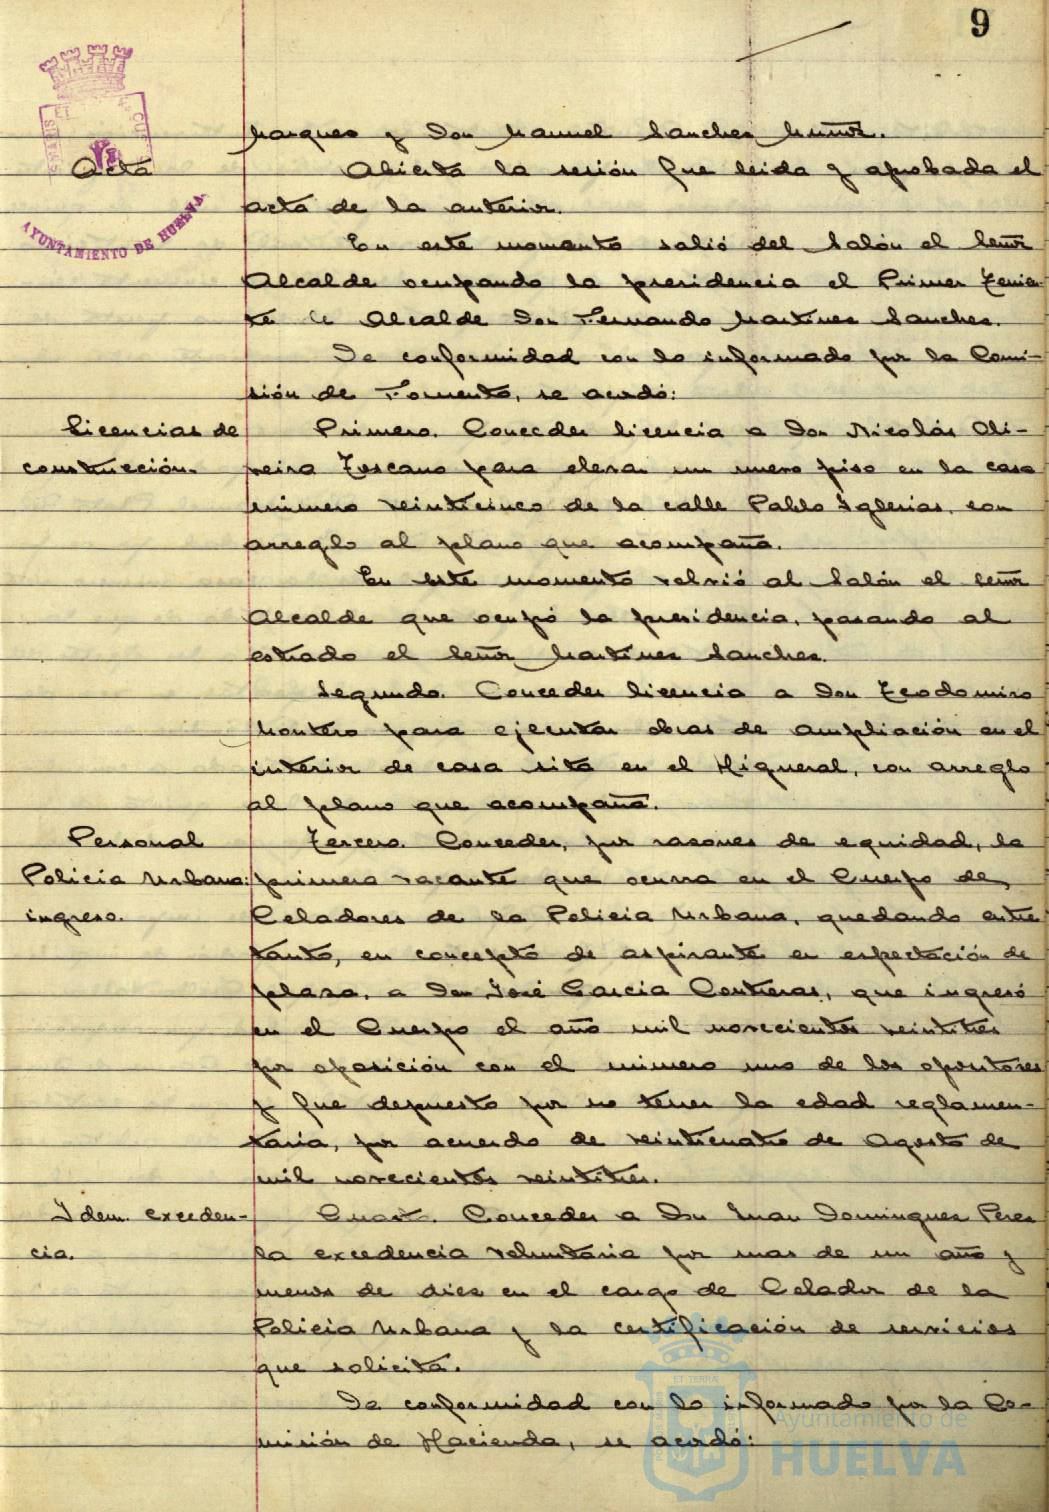 9
Marquez y Don Manuel Sanchez Muñoz.
Acta
Abierta la sesión fue leida y aprobada el
acta de la anterior.
AYUNTAMIENTO DE HUELVA
En este momento salió del Salón el Señor
Alcalde ocupando la presidencia el Primer Tenien-
te de Alcalde Don Fernando Martinez Sanchez.
De conformidad con lo informado por la Comi-
sión de Fomento, se acordó:
Licencias de
construcción.
Primero. Conceder licencia a Don Nicolás Oli-
veira Toscano para elevar un nuevo piso en la casa
número veinticinco de la calle Pablo Iglesias, con
arreglo al plano que acompaña.
En este momento volvió al Salón el Señor
Alcalde que ocupó la presidencia, pasando al
estrado el Señor Martinez Sanchez.
Segundo. Conceder licencia a Don Teodomiro
Montero para ejecutar obras de ampliación en el
interior de casa sita en el Higueral, con arreglo
al plano que acompaña.
Personal
Policia Urbana:
ingreso.
Tercero. Conceder, por razones de equidad, la
primera vacante que ocurra en el Cuerpo de
Celadores de la Policia Urbana, quedando entre
tanto, en concepto de aspirante en espectación de
plaza, a Don José Garcia Contreras, que ingresó
en el Cuerpo el año mil novecientos veintitres
por oposición con el número uno de los opositores
y fue depuesto por no tener la edad reglamen-
taria, por acuerdo de veinticuatro de Agosto de
mil novecientos veintitres.
Idem. exceden-
cia.
Cuarto. Conceder a Don Juan Dominguez Perez
la excedencia voluntaria por mas de un año y
menos de diez en el cargo de Celador de la
Policia Urbana y la certificación de servicios
que solicita.
De conformidad con lo informado por la Co-
misión de Hacienda, se acordó:
Ayuntamiento de
HUELVA